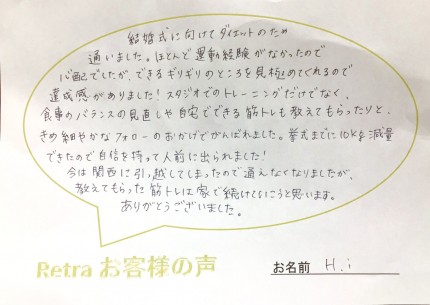 結婚式に向けてダイエットのため
通いました。ほとんど運動経験がなかったので
心配でしたが、できるギリギリのところを見極めてくれるので
達成感がありました！スタジオでのトレーニングだけでなく、
食事のバランスの見直しや自宅でできる筋トレも教えてもらったりと、
きめ細やかなフォローのおかげでがんばれました。挙式までに10kg減量
できたので自信を持って人前に出られました！
今は関西に引っ越してしまったので通えなくなりましたが、
教えてもらった筋トレは家で続けていこうと思います。
ありがとうございました。
Retra お客様の声
お名前 H.i